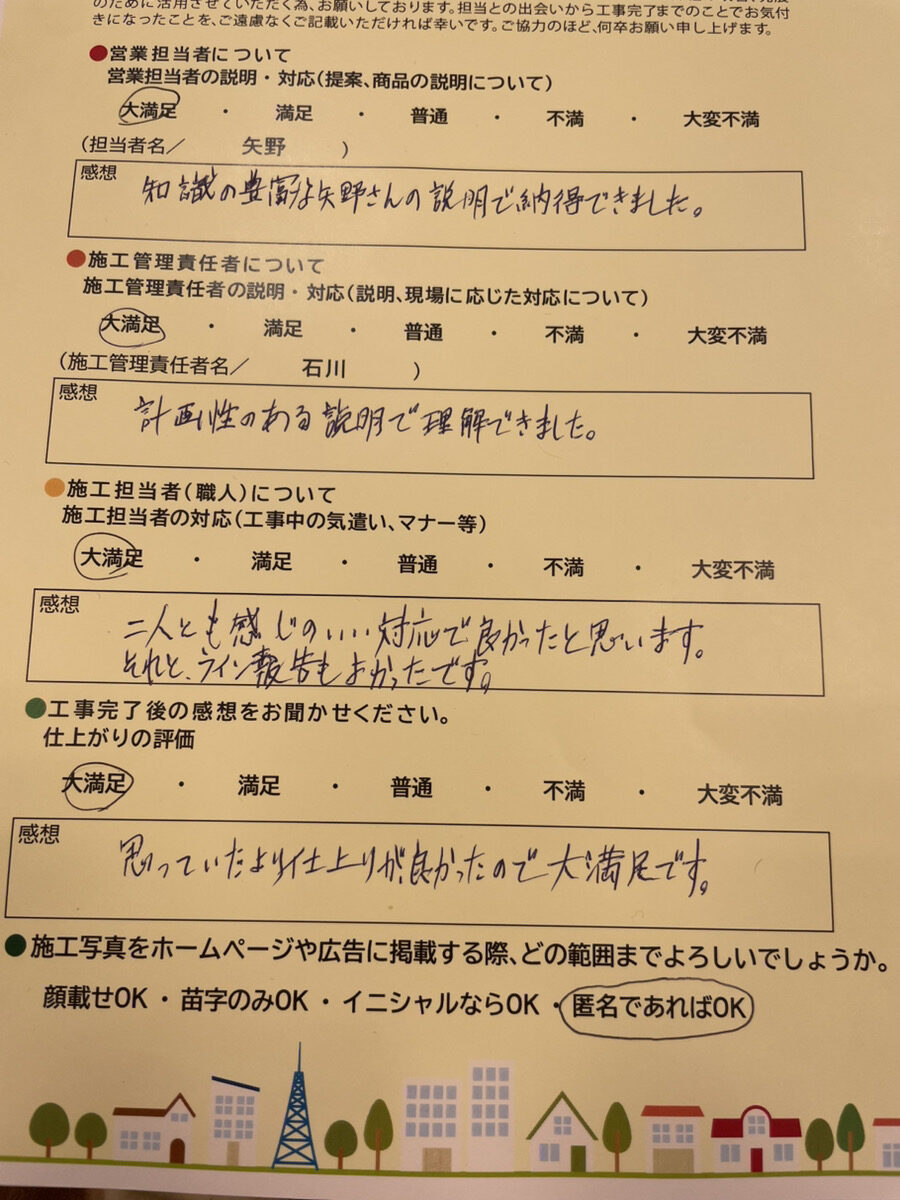 のために活用させていただく為、お願いしております。担当との出会いから工事完了までのことでお気付
きになったことを、ご遠慮なくご記載いただければ幸いです。ご協力のほど、何卒お願い申し上げます。
●営業担当者について
営業担当者の説明・対応(提案、商品の説明について)
大満足 ・ 満足 ・ 普通 ・ 不満 ・ 大変不満
(担当者名/ 矢野 )
感想
知識の豊富な矢野さんの説明で納得できました。
●施工管理責任者について
施工管理責任者の説明・対応(説明、現場に応じた対応について)
大満足 ・ 満足 ・ 普通 ・ 不満 ・ 大変不満
(施工管理責任者名/ 石川 )
感想
計画性のある説明で理解できました。
●施工担当者(職人)について
施工担当者の対応(工事中の気遣い、マナー等)
大満足 ・ 満足 ・ 普通 ・ 不満 ・ 大変不満
感想
二人とも感じのいい対応で良かったと思います。
それと、ライン報告もよかったです。
●工事完了後の感想をお聞かせください。
仕上がりの評価
大満足 ・ 満足 ・ 普通 ・ 不満 ・ 大変不満
感想
思っていたより仕上りが良かったので大満足です。
●施工写真をホームページや広告に掲載する際、どの範囲までよろしいでしょうか。
顔載せOK・苗字のみOK・イニシャルならOK・匿名であればOK